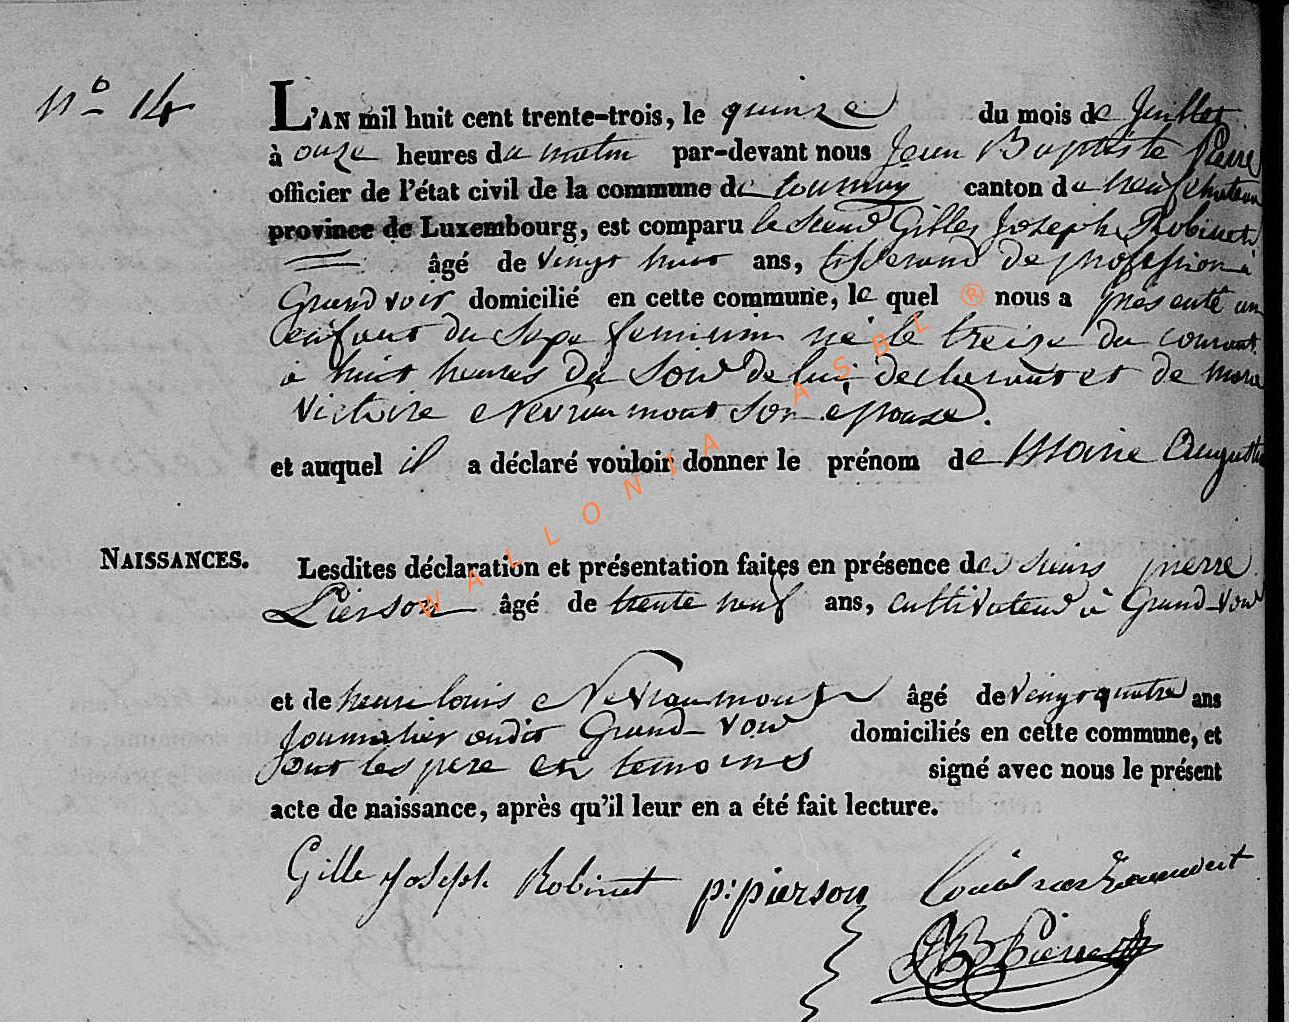 No 14
L'AN mil huit cent trente-trois, le quinze du mois de Juillet
à onze heures du matin par-devant nous Jean Baptiste Pierre
officier de l'état civil de la commune de tournay canton de neufchateau
province de Luxembourg, est comparu le Sieur Gilles Joseph Robinet
âgé de vingt huit ans, tisserand de profession à
Grand voir domicilié en cette commune, le quel nous a présenté un
enfant du Sexe feminin né le treize du courant
à huit heures du Soir de lui declarant et de marie
Victoire Nevraumont Son épouse.
et auquel il a déclaré vouloir donner le prénom de Marie Augustine
NAISSANCES.
Lesdites déclaration et présentation faites en présence des sieurs pierre
Pierson âgé de trente neuf ans, cultivateur à Grand-voir
et de henri louis Nevraumont âgé de vingt quatre ans
Journalier audit Grand-voir domiciliés en cette commune, et
sont les pere et temoins signé avec nous le présent
acte de naissance, après qu'il leur en a été fait lecture.
Gille Joseph Robinet p: pierson Louis
JB Pierre
WALLONIA ASBL ®